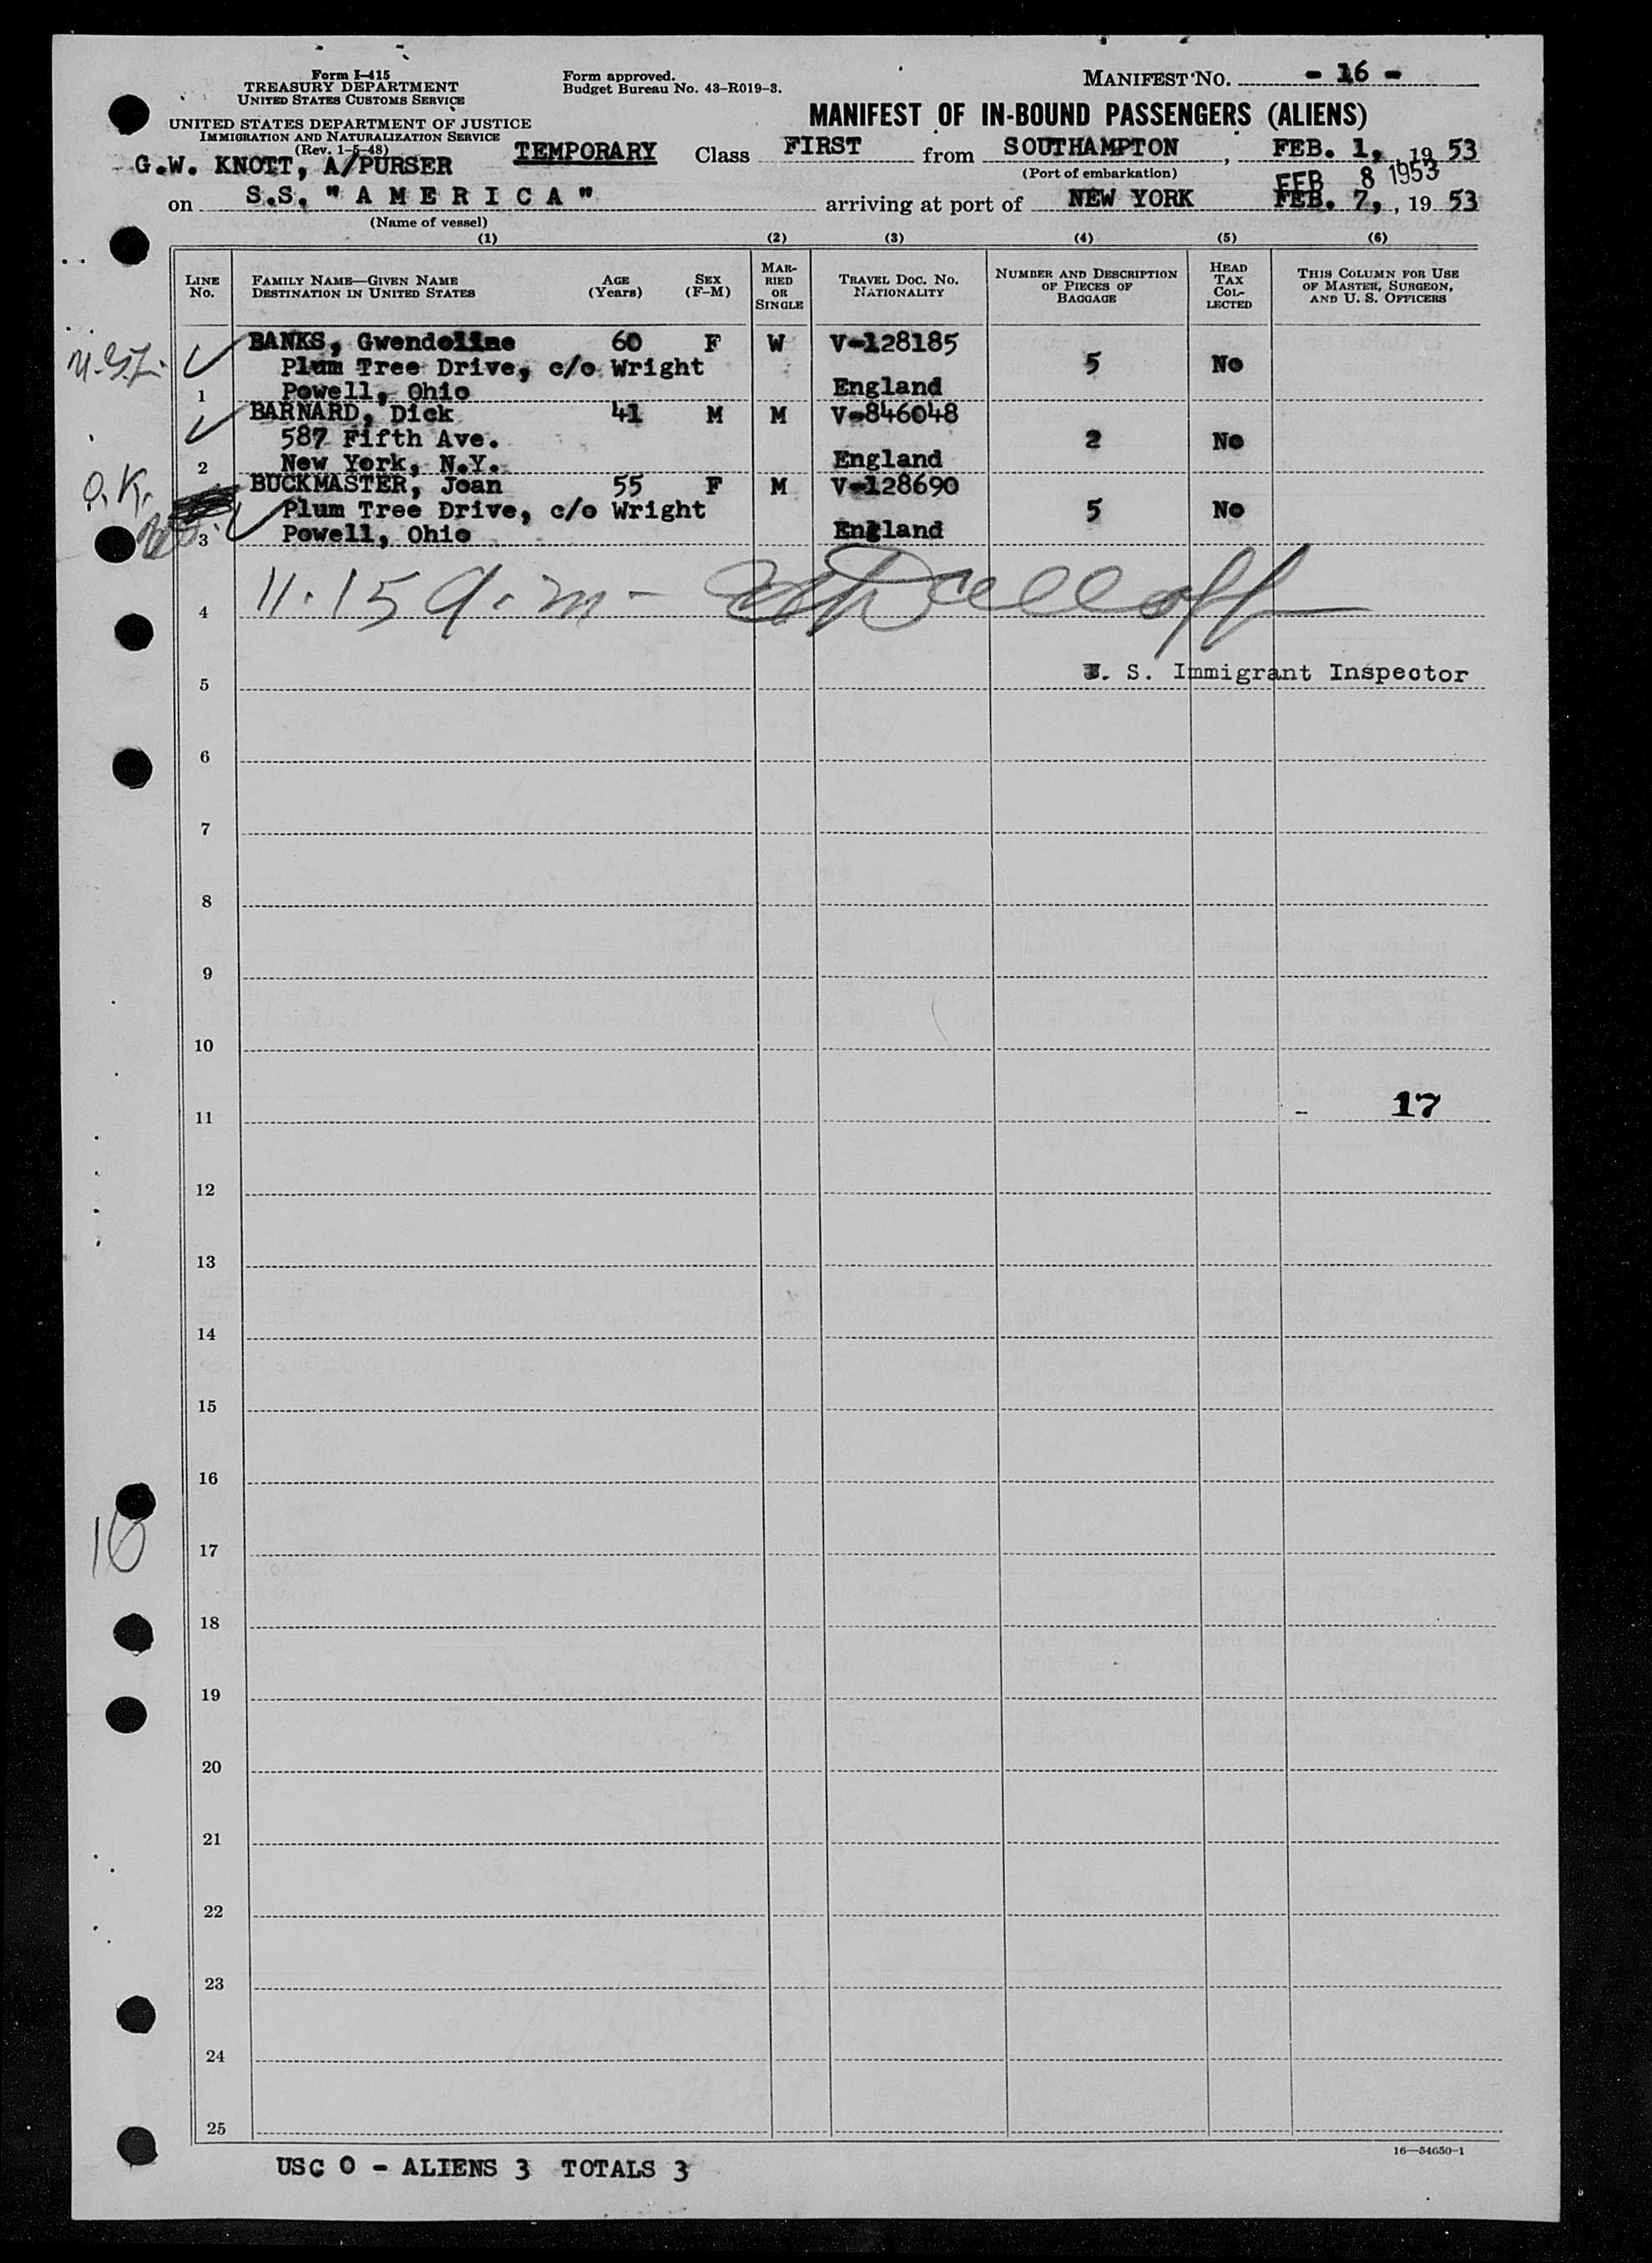 Form I-415
TREASURY DEPARTMENT
UNITED STATES CUSTOMS SERVICE
UNITED STATES DEPARTMENT OF JUSTICE
IMMIGRATION AND NATURALIZATION SERVICE
(Rev. 1-5-48)
Form approved.
Budget Bureau No. 43-R019-3.
MANIFEST NO. - 16 -
MANIFEST OF IN-BOUND PASSENGERS (ALIENS)
G.W. KNOTT, A/PURSER TEMPORARY Class FIRST from SOUTHAMPTON, FEB. 1, , 19 53
(Port of embarkation)
FEB 8 1953
on S.S. "A M E R I C A" arriving at port of NEW YORK FEB. 7, , 19 53
(Name of vessel)
(1) (2) (3) (4) (5) (6)
LINE No.
FAMILY NAME—GIVEN NAME
DESTINATION IN UNITED STATES
AGE (Years)
SEX (F-M)
MARRIED OR SINGLE
TRAVEL DOC. NO.
NATIONALITY
NUMBER AND DESCRIPTION OF PIECES OF BAGGAGE
HEAD TAX COLLECTED
THIS COLUMN FOR USE OF MASTER, SURGEON, AND U. S. OFFICERS
BANKS, Gwendoline 60 F W V-128185
Plum Tree Drive, c/o Wright 5 No
1 Powell, Ohio England
BARNARD, Dick 41 M M V-846048
587 Fifth Ave. 2 No
2 New York, N.Y. England
O.K.
BUCKMASTER, Joan 55 F M V-128690
Plum Tree Drive, c/o Wright 5 No
3 Powell, Ohio England
4 11.15 a.m -
U. S. Immigrant Inspector
5
6
7
8
9
10
11 - 17
12
13
14
15
16
10
17
18
19
20
21
22
23
24
25
16—54650-1
USC 0 - ALIENS 3 TOTALS 3